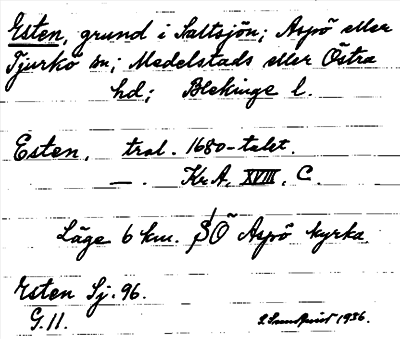 Esten, grund i Saltsjön; Aspö eller
Tjurkö sn; Medelstads eller Östra
hd; Blekinge l.
Esten, trol. 1680-talet.
— . Kr.A. XVIII. C.
Läge 6 km. SÖ Aspö kyrka
Esten Sj. 96.
G. 11.
1936.